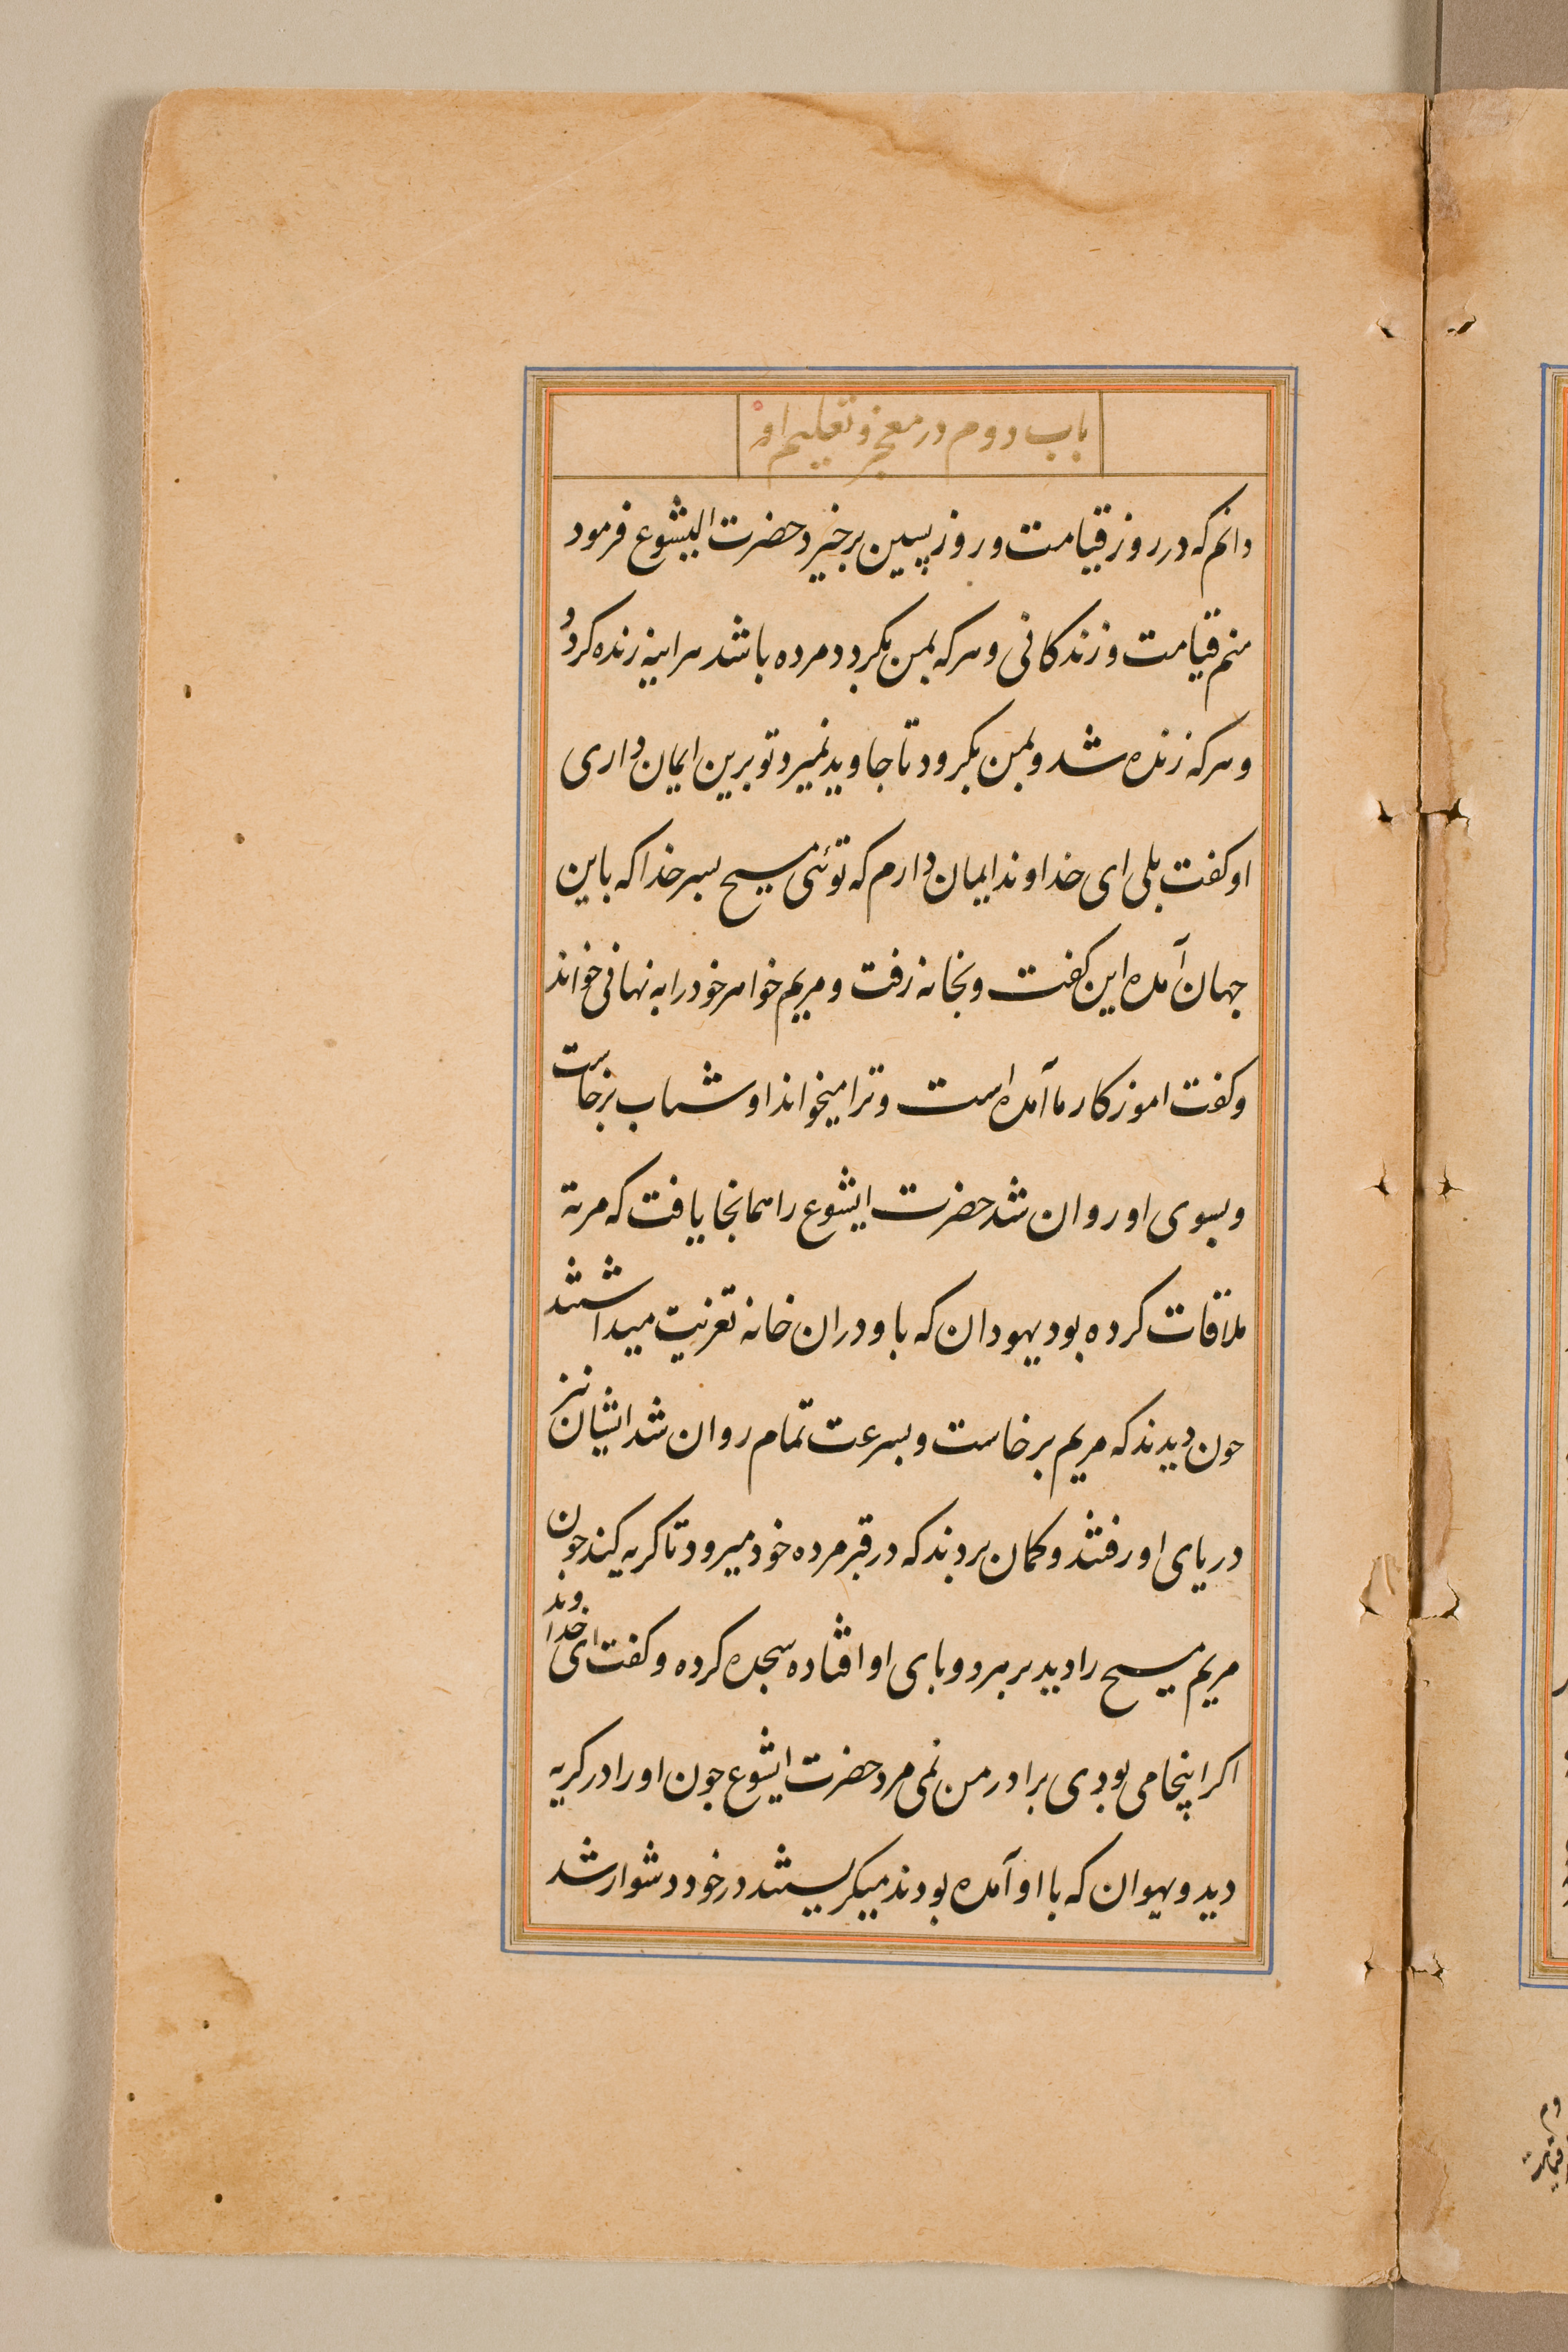 باب دوم در معجز و تعلیم او
دانم که در روز قیامت و روز پسین برخیزد حضرت ایشوع فرمود
منم قیامت و زندکانی و هرکه بمن بکرود مرده باشد هراینه زنده کردد و
و هرکه زنده شد و بمن بکرود تا جاوید نمیرد تو برین ایمان داری
او کفت بلی ای خداوند ایمان دارم که توئی مسیح پسر خدا که باین
جهان آمده این کفت و بخانه رفت و مریم خواهر خود را به نهانی خواند
و کفت اموزکار ما آمده است و ترا میخواند او شتاب برخاست
و بسوی او روان شد حضرت ایشوع را همانجا یافت که مرته
ملاقات کرده بود یهودان که با و دران خانه تعزیت میداشتند
چون دیدند که مریم برخاست و بسرعت تمام روان شد ایشان نیز
در پای او رفتند و کمان بردند که در قبر مرده خود میرود تا کریه کند چون
مریم مسیح را دید بر هر دو پای او افتاده سجده کرده و کفت ای خداوند
اکر اینجا می بودی برادر من نمی مرد حضرت ایشوع چون او را در کریه
دید و یهوان که با او آمده بودند میکریستند در خود دشوار شد